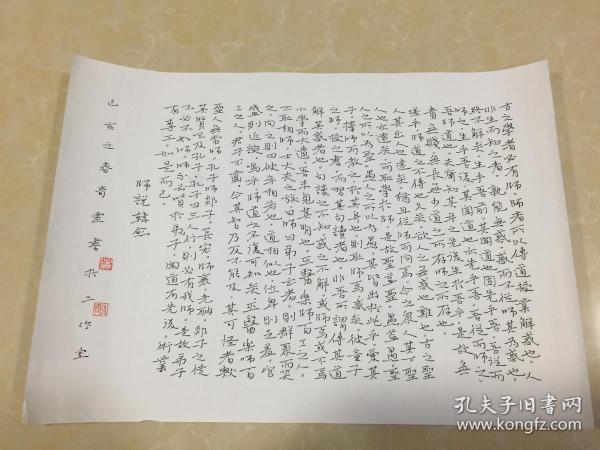 古之學者必有師。師者所以傳道授業解惑也。人
非生而知之者。孰能無惑。惑而不從師。其為惑也。
終不解矣。生乎吾前其聞道也固先乎吾。吾從而
師之。生乎吾後其聞道也亦先乎吾。吾從而師之。
吾師道也。夫庸知其年之先後生於吾乎。是故無
貴無賤。無長無少。道之所存。師之所存也。
嗟乎師道之不傳也久矣。欲人之無惑也難也。古之聖
人其出人也遠矣。猶且從師而問焉。今之眾人其下聖
人也亦遠矣。而恥學於師。是故聖益聖。愚益愚。聖
人之所以為聖。愚人之所以為愚。其皆出於此乎。愛其
子擇師而教之。於其身也則恥師焉。惑矣。彼童子
之師。授之書而習其句讀者也。非吾所謂傳其道
解其惑者也。句讀之不知。惑之不解。或師焉或不焉。
小學而大遺。吾未見其明也。巫醫樂師百工之人。
不恥相師。士大夫之族。曰師曰弟子云者。則群聚而笑
之。問之則曰。彼與彼年相若也。道相似也。位卑則足羞。官
盛則近諛。嗚呼師道之不復可知矣。巫醫樂師百
工之人。君子不齒。今其智乃反不能及。其可怪者歟。
聖人無常師。孔子師郯子萇宏師襄老聃。郯子之徒
其賢不及孔子。孔子曰三人行則必有我師。是故弟子
不必不如師。師不必賢於弟子。聞道有先後。術業
有專工。如是而已。
師說 韓愈
己亥之春 書於工作室
孔夫子旧书网
www.kongfz.com